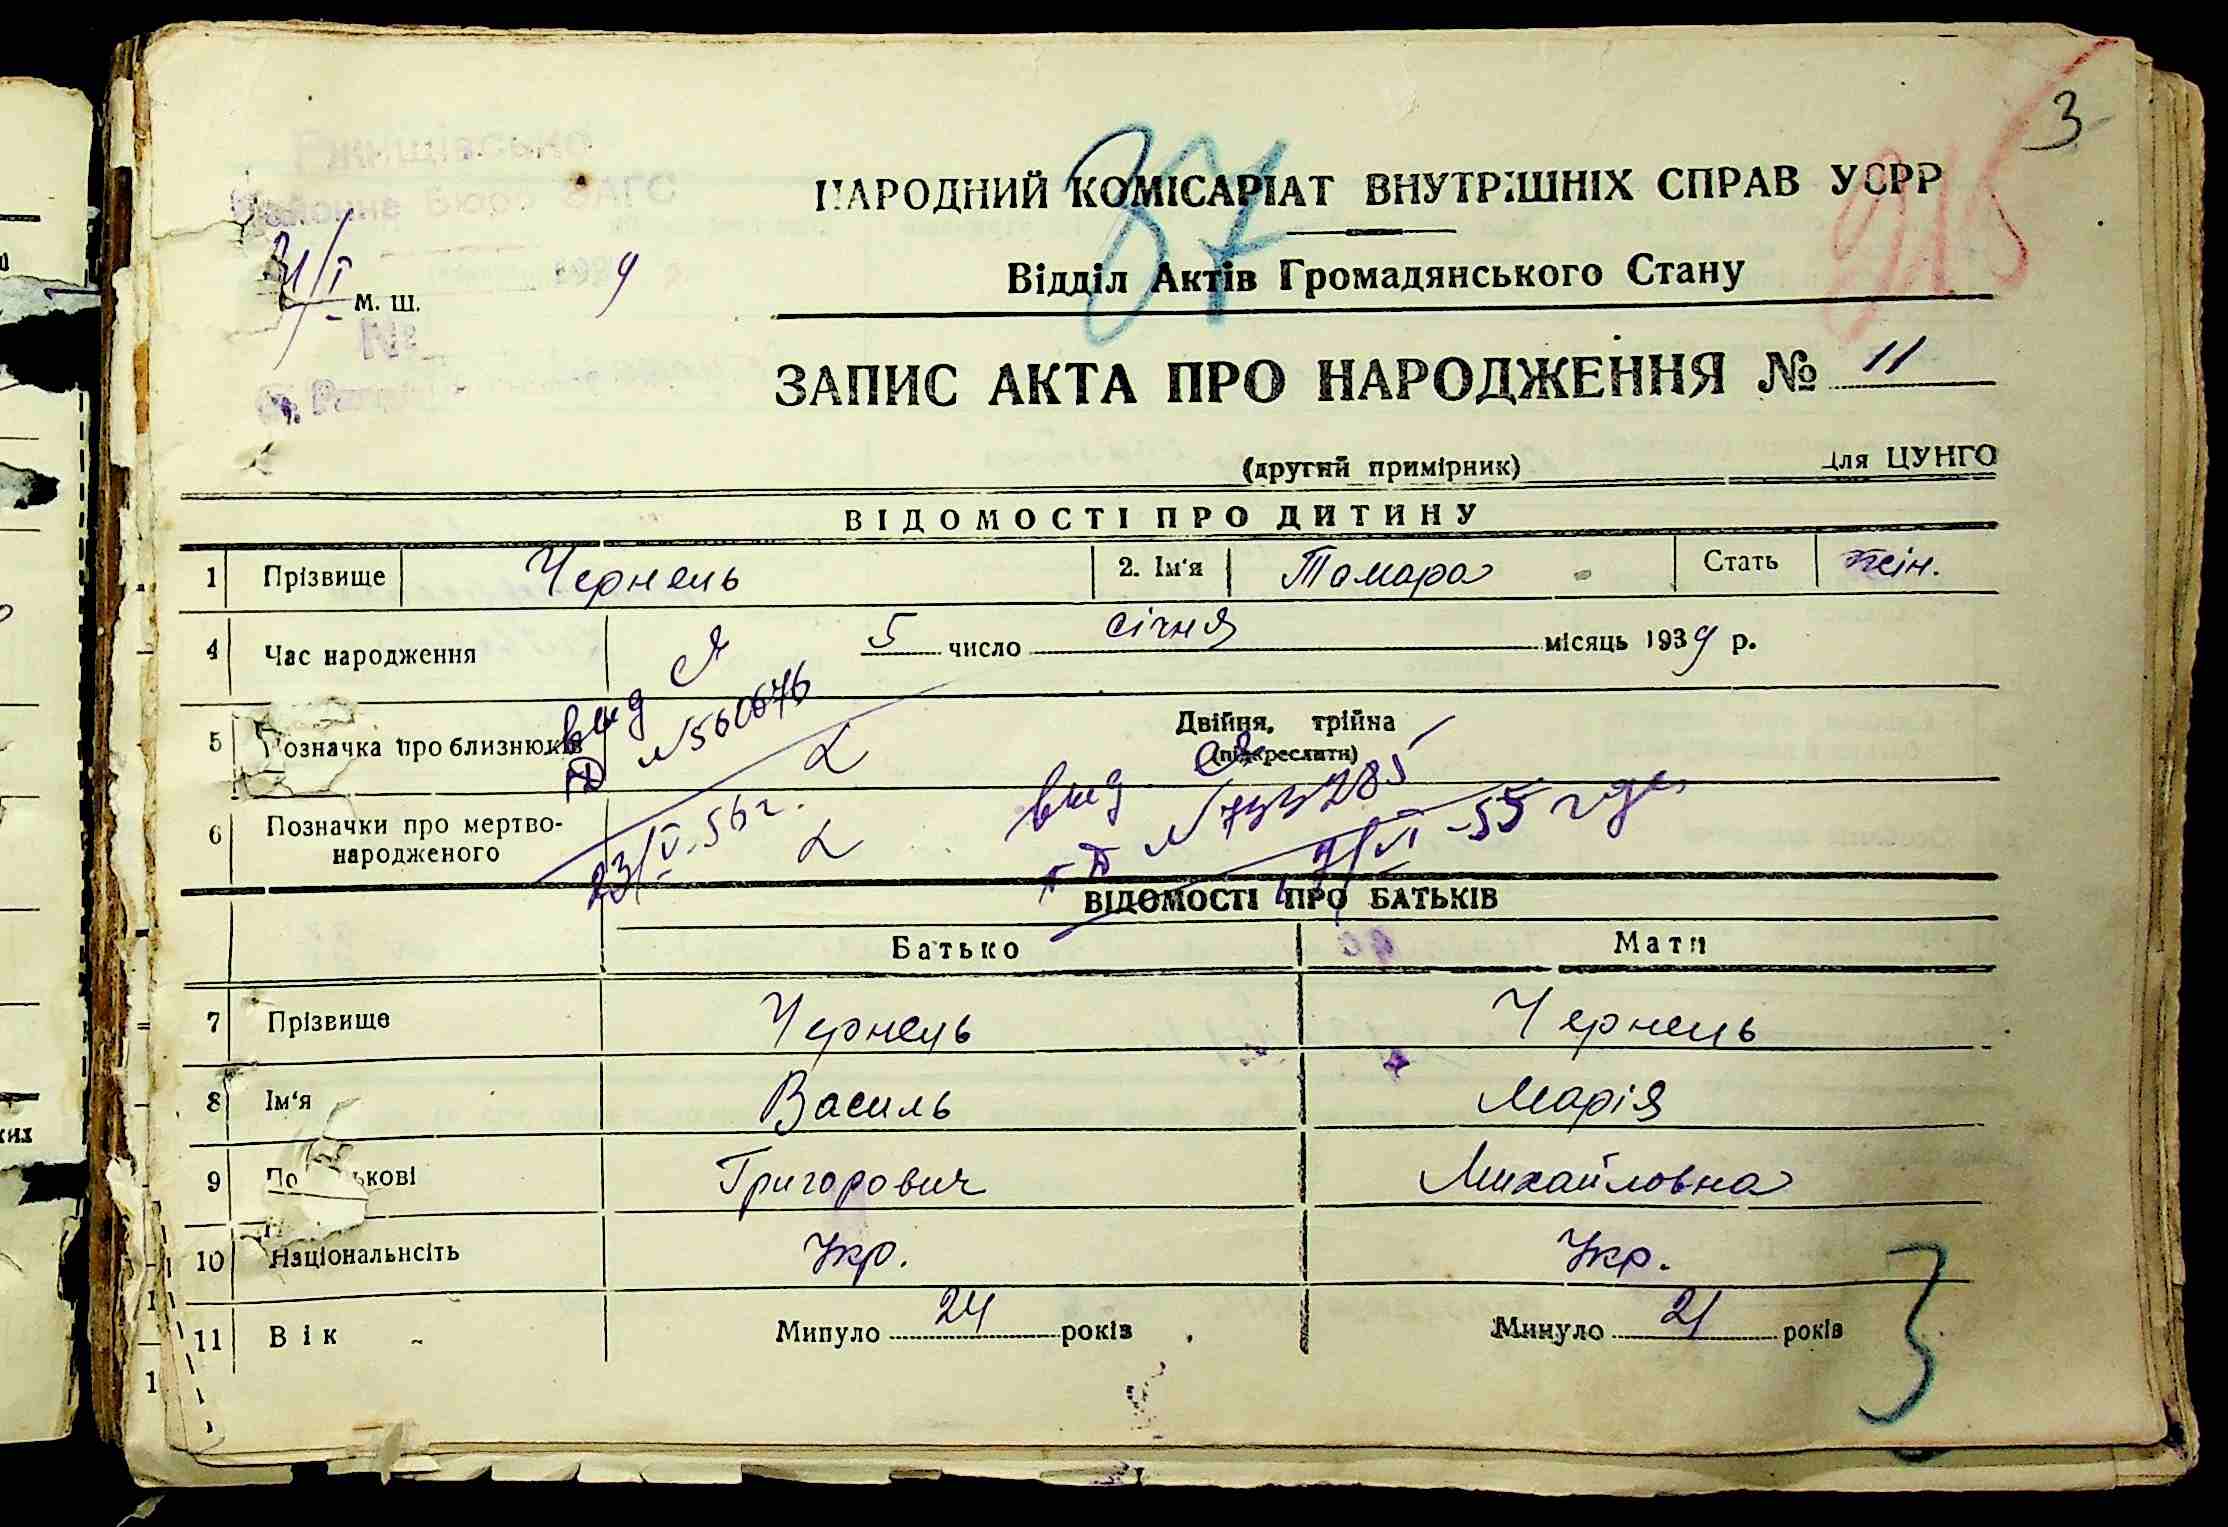 3
87
915
Ржищівсько
Районне Бюро ЗАГС
31/I 1939
м. ш.
№
НАРОДНИЙ КОМІСАРІАТ ВНУТРІШНІХ СПРАВ УСРР
Відділ Актів Громадянського Стану
ЗАПИС АКТА ПРО НАРОДЖЕННЯ № 11
(другий примірник) Для ЦУНГО
ВІДОМОСТІ ПРО ДИТИНУ
1 Прізвище Чернець 2. Ім'я Тамара Стать жін.
4 Час народження 5 число січня місяць 1939 р.
5 Позначка про близнюків Двійня, трійня
(підкреслити)
6 Позначки про мертво-
народженого
№ 560676
23/V-56 г.
ВІДОМОСТІ ПРО БАТЬКІВ
Батько Мати
7 Прізвище Чернець Чернець
8 Ім'я Василь Марія
9 По батькові Григорович Михайловна
10 Національнсіть Укр. Укр.
11 Вік Минуло 24 років Минуло 21 років
3